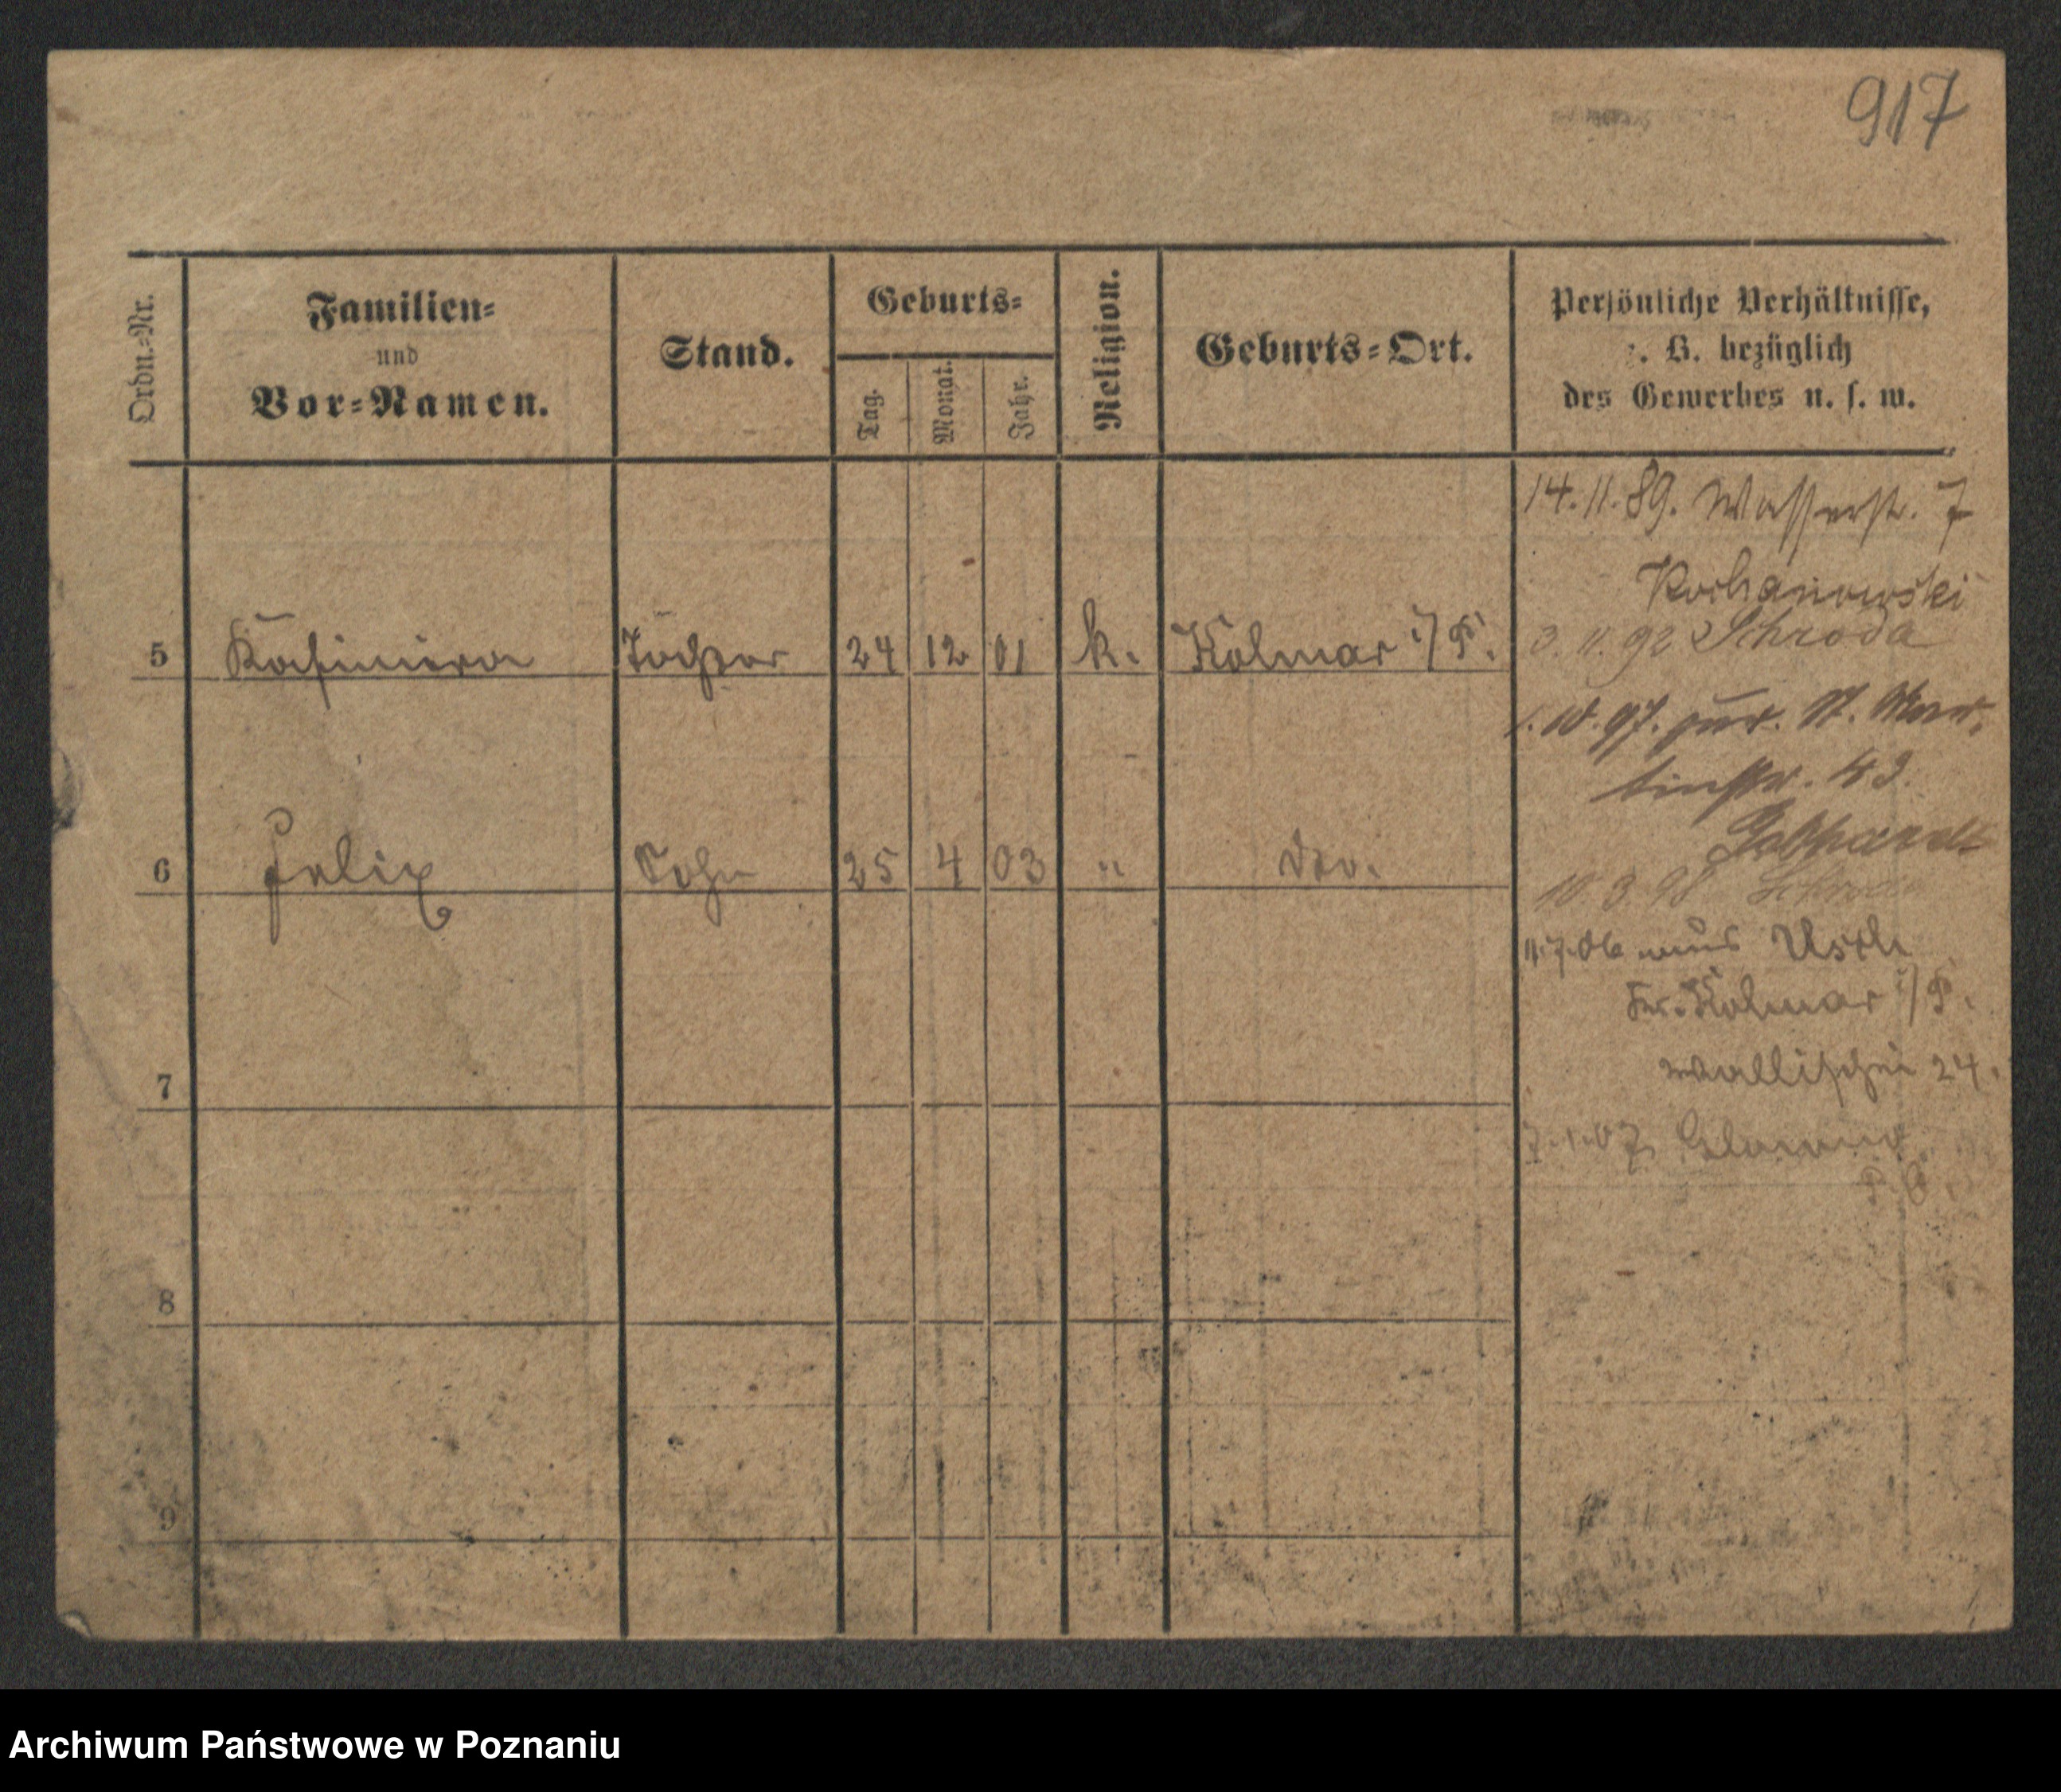 917
Ordn.-Nr.
Familien-
und
Vor-Namen.
Stand.
Geburts-
Tag.
Monat.
Jahr.
Religion.
Geburts-Ort.
Persönliche Verhältnisse,
z. B. bezüglich
des Gewerbes u. s. w.
14. 11. 89. Wasserstr. 7
Kochanowski
5 Kasimiera Tochter 24 12 01 k. Kolmar i/P.
3. 11. 92 Schroda
1. 10. 97. zur. St. Mar-
tinstr. 43.
Gebhardt
6 Felix Sohn 25 4 03 " do.
10. 3. 98 Schroda
11.7.06 aus Usch
Kr. Kolmar i/P.
Wallischei 24.
7
7.1.07
8
9
Archiwum Państwowe w Poznaniu